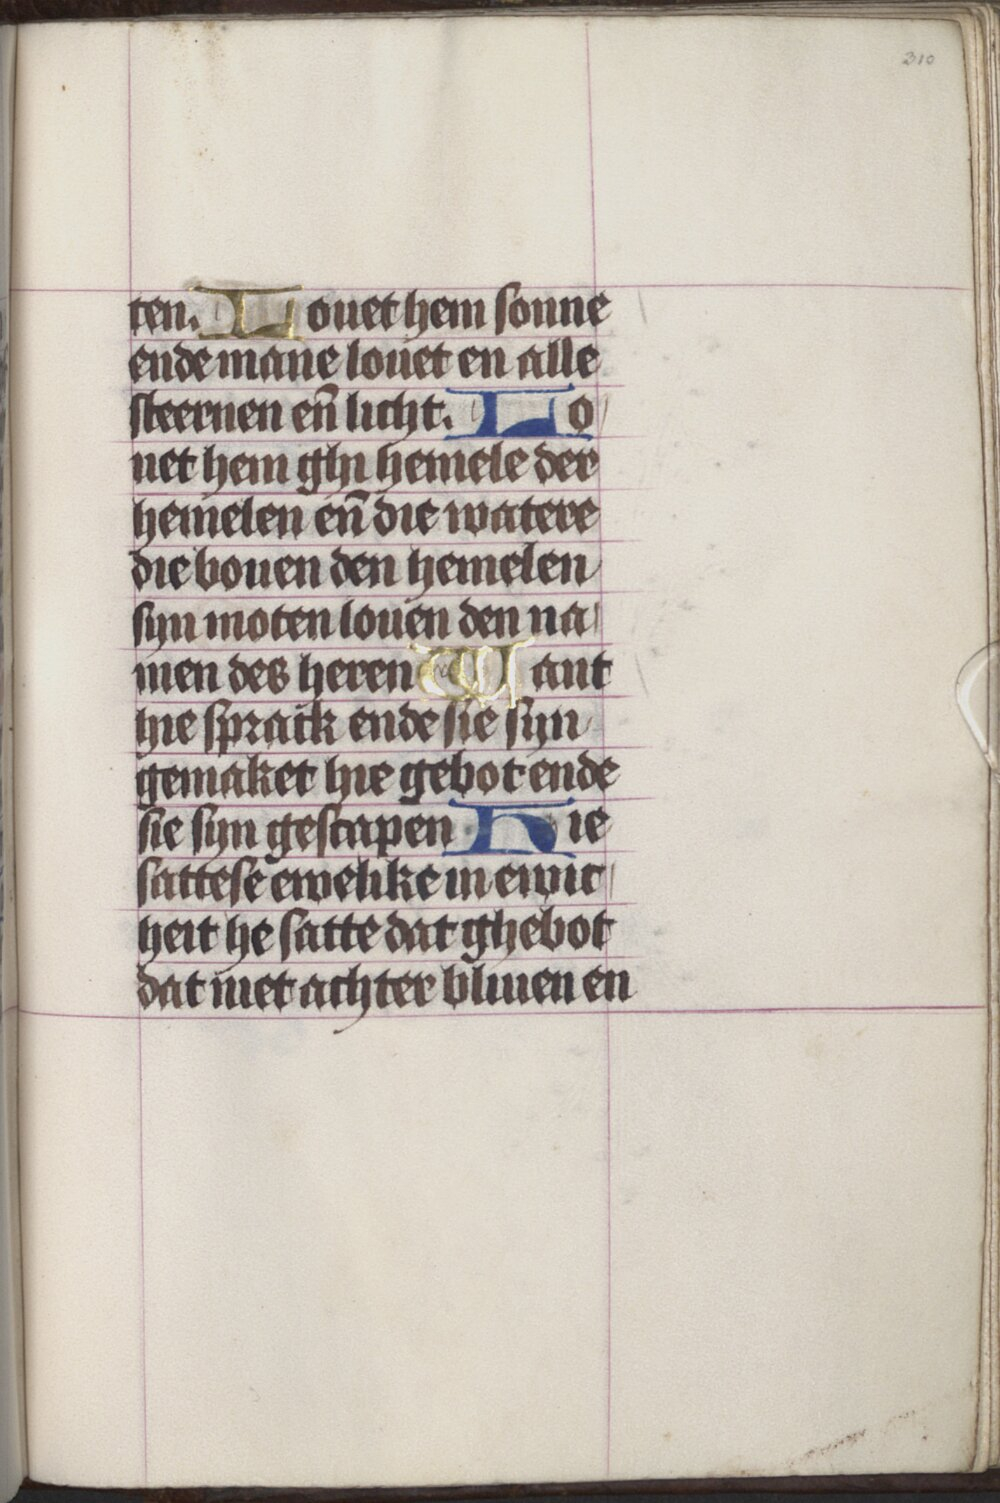 310
ten. Louet hem sonne
ende mane louet en alle
steernen en̄ licht. Lo
uet hem ghi hemele der
hemelen en̄ die watere
die bouen den hemelen
syn moten louen den na
men des heren Want
hie sprack ende sie syn
gemaket hie gebot ende
sie syn gescapen Hie
sattese ewelike in ewic
heit he satte dat ghebot
dat niet achter bliuen en